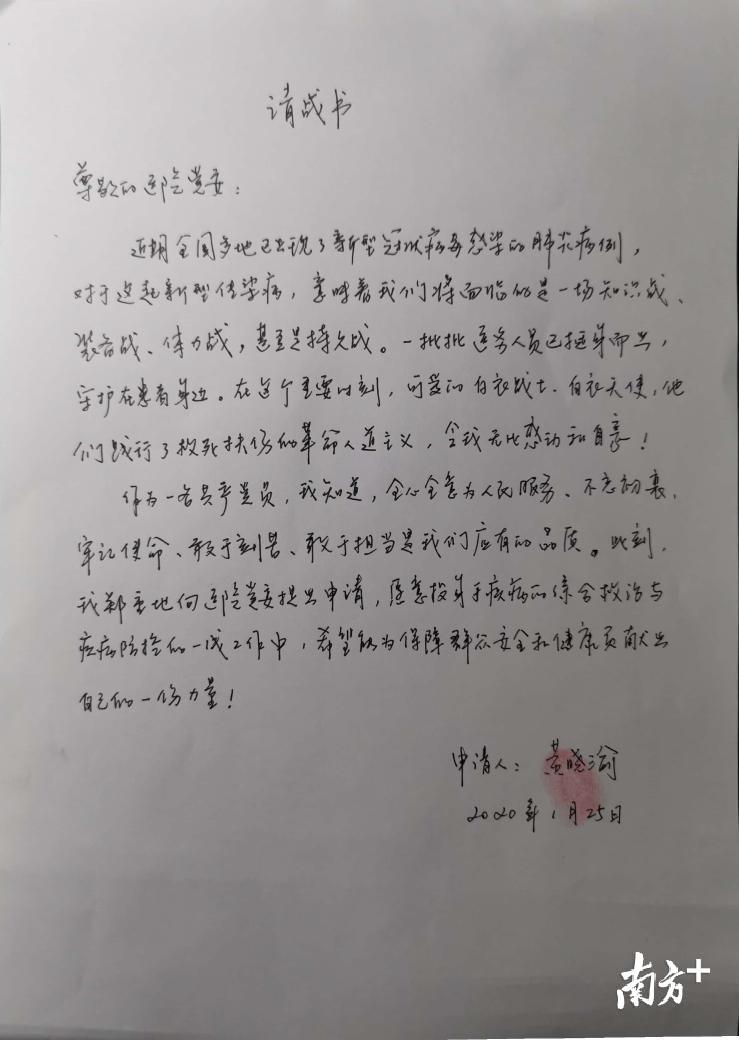 请战书
尊敬的医院党委：
近期全国多地已出现了新型冠状病毒感染的肺炎病例，
对于这起新型传染病，意味着我们将面临的是一场知识战、
装备战、体力战，甚至是持久战。一批批医务人员已挺身而出，
守护在患者身边。在这个重要时刻，可爱的白衣战士、白衣天使，他
们践行了救死扶伤的革命人道主义，令我无比感动和自豪！
作为一名共产党员，我知道，全心全意为人民服务、不忘初衷、
牢记使命、敢于刻苦、敢于担当是我们应有的品质。此刻，
我郑重地向医院党委提出申请，愿意投身于疾病的综合救治与
疫病防控的一线工作中，希望能为保障群众安全和健康贡献出
自己的一份力量！
申请人：黄晓渝
2020年1月25日
南方+